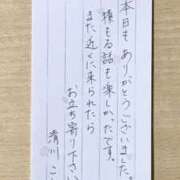 本日もありがとうございました。
積もる話も楽しかったです。
また近くに来られたら
お立ち寄り下さい
清川